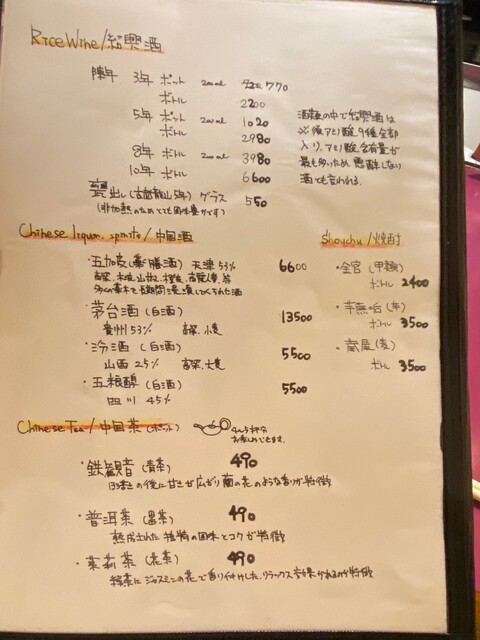 Rice Wine/紹興酒
陳年 3年 ポット 200ml 770
ボトル 2200
5年 ポット 200ml 1020
ボトル 2980
8年 ボトル 3980
10年 ボトル 6600
甕出し(古越龍山5年) グラス 550
(非加熱のためとても風味豊かです)
酒類の中で紹興酒は
必須アミノ酸9種全部
入り、アミノ酸含有量が
最も多いため 悪酔しない
酒でも言われる。
Chinese liquor, spirits/中国酒
・五加皮(薬膳酒) 天津53% 6600
・茅台酒(白酒) 13500
貴州53% 高粱、小麦
・汾酒 (白酒) 5500
山西 25% 高粱、大麦
・五粮醇(白酒) 5500
四川 45%
Shochu/焼酎
・金宮(甲類)
ボトル 2400
ボトル 3500
・蔵屋(麦)
ボトル 3500
Chinese Tea/中国茶(ポット)
4~5杯分
お楽しみできます。
・鉄観音(青茶) 490
口に含んだ後に甘さが広がり蘭の花のような香りが特徴
・普洱茶(黒茶) 490
熟成された独特の風味とコクが特徴
・茉莉茶(花茶) 490
緑茶にジャスミンの花で香り付けした、リラックス効果があるのが特徴